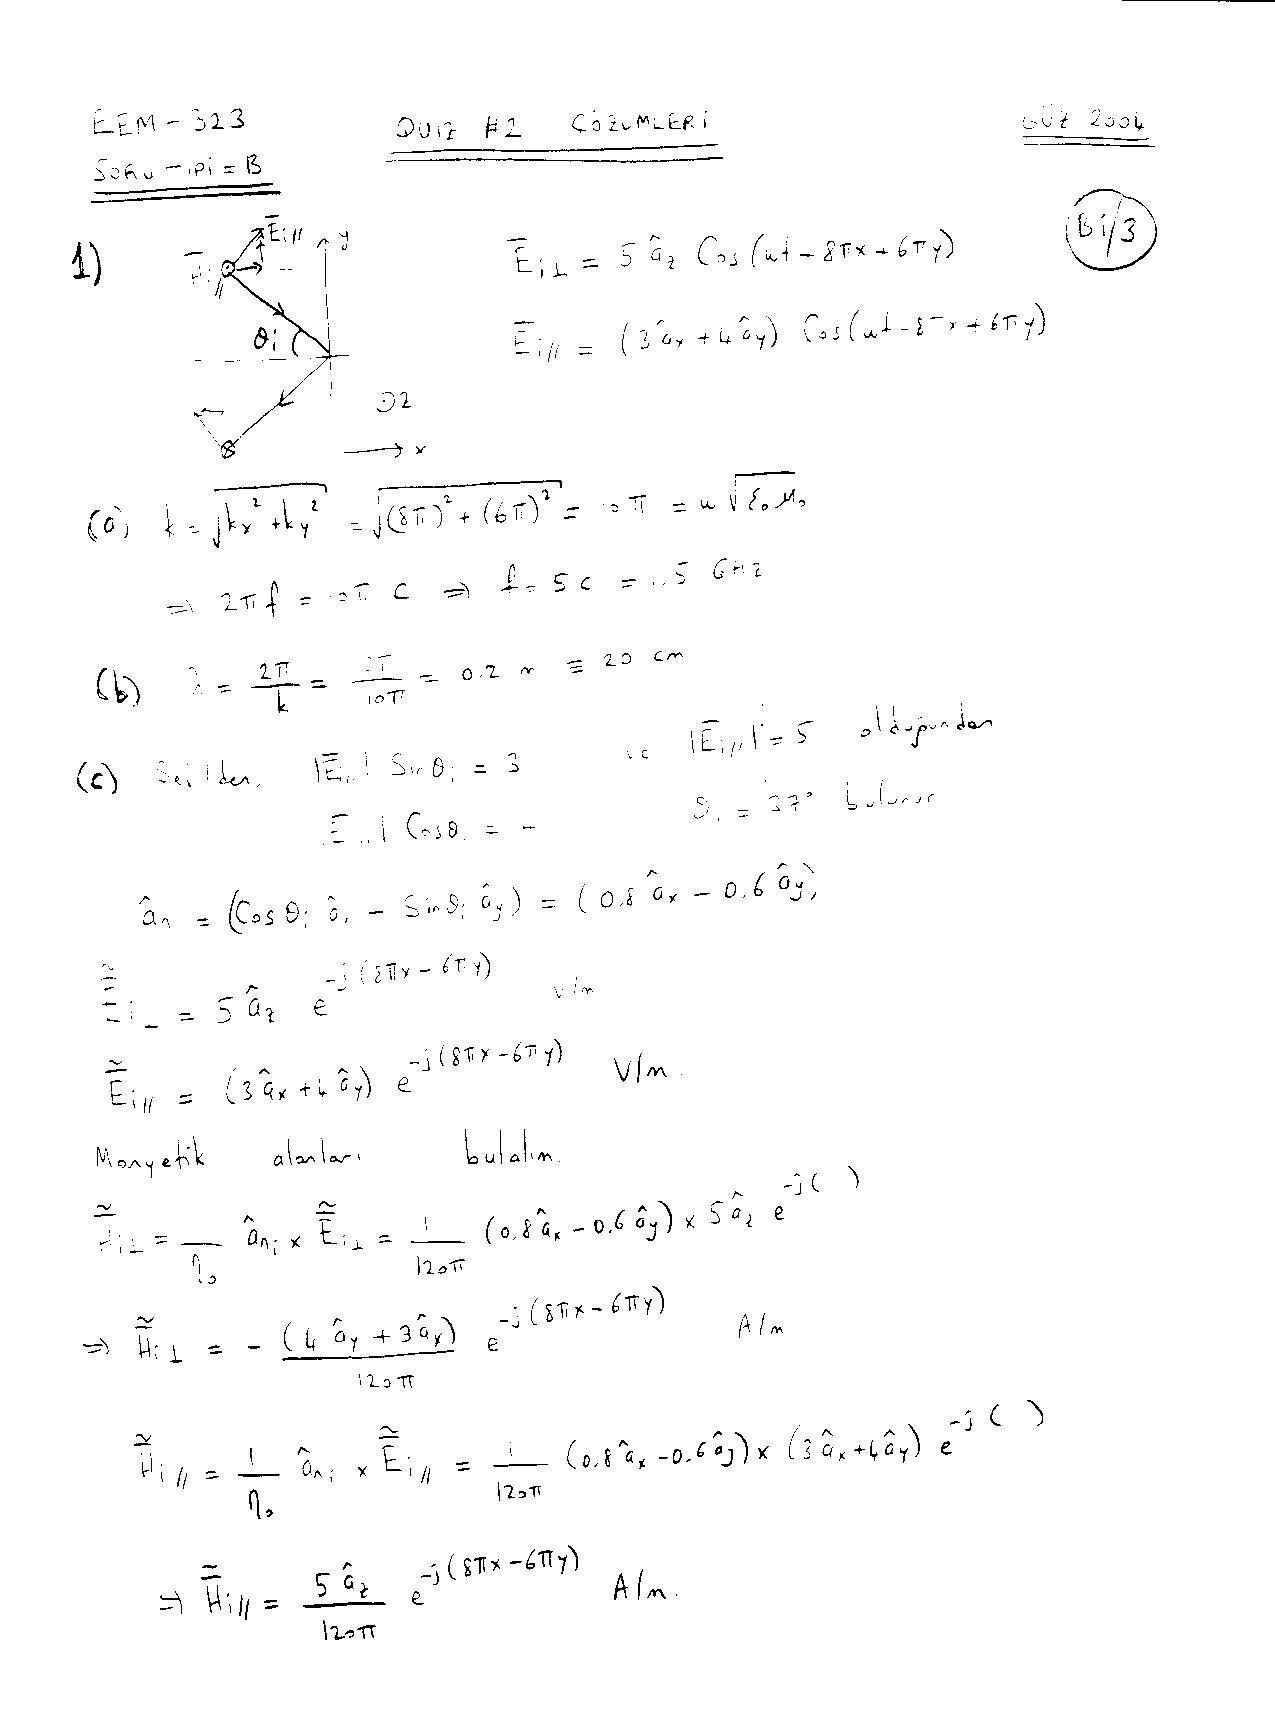 EEM-323
QUIZ #2 ÇÖZÜMLERİ
GÜZ 2004
Soru Tipi = B
Bi/3
1)
Ēi// y
H̄i//
θi
z
x
Ēi⊥ = 5 âz Cos(wt - 8πx + 6πy)
Ēi// = (3âx + 4ây) Cos(wt - 8πx + 6πy)
(a) k = √(kx² + ky²) = √((8π)² + (6π)²) = 10π = w√(ε₀μ₀)
⇒ 2πf = 10π c ⇒ f = 5c = 1.5 GHz
(b) λ = 2π/k = 2π/10π = 0.2 m ≡ 20 cm
(c) Şekilden, |Ēi//| Sinθi = 3 ve |Ēi//| = 5 olduğundan
|Ēi//| Cosθi = θi = 37° bulunur
ân = (Cosθi âx - Sinθi ây) = (0.8 âx - 0.6 ây)
Ẽi⊥ = 5 âz e^-j(8πx - 6πy) V/m
Ẽi// = (3âx + 4ây) e^-j(8πx - 6πy) V/m.
Manyetik alanları bulalım.
H̃i⊥ = 1/η₀ âni × Ẽi⊥ = 1/120π (0.8âx - 0.6ây) × 5âz e^-j( )
⇒ H̃i⊥ = - (4 ây + 3 âx)/120π e^-j(8πx - 6πy) A/m
H̃i// = 1/η₀ âni × Ẽi// = 1/120π (0.8âx - 0.6ây) × (3âx + 4ây) e^-j( )
⇒ H̃i// = 5 âz/120π e^-j(8πx - 6πy) A/m.